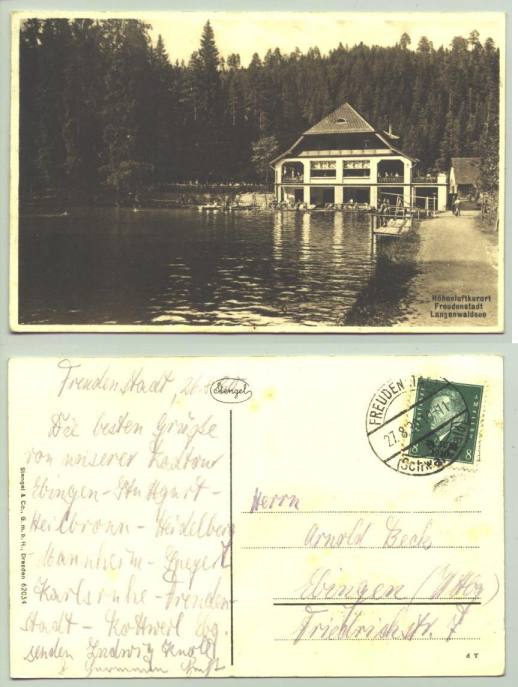 Höhenluftkurort
Freudenstadt
Langenwaldsee
Freudenstadt, 26.
Stengel
Die besten Grüße
von unserer Radtour
Ebingen - Stuttgart -
Heilbronn - Heidelberg
Mannheim - Speyer
Karlsruhe - Freuden
stadt - Rottweil Ebg.
senden Ludwig Knobl
Stengel & Co., G. m. b. H., Dresden 62034
FREUDEN
27.8.
(Schwarzwald)
8 8
Herrn
Arnold Beck
Ebingen (Wttbg)
Friedrichstr. 7